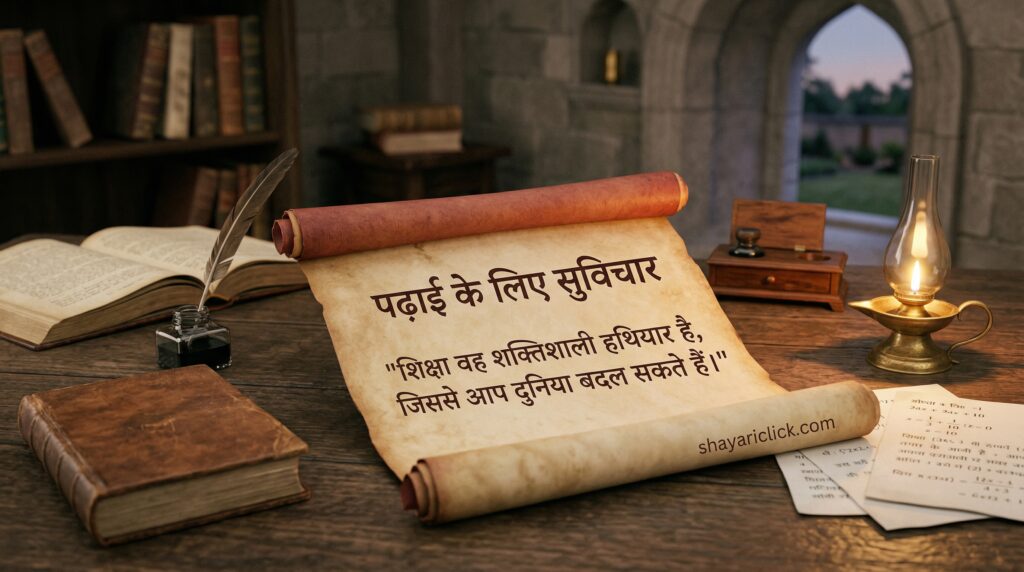 पढ़ाई के लिए सुविचार
"शिक्षा वह शक्तिशाली हथियार है,
जिससे आप दुनिया बदल सकते हैं।"
shayariclick.com